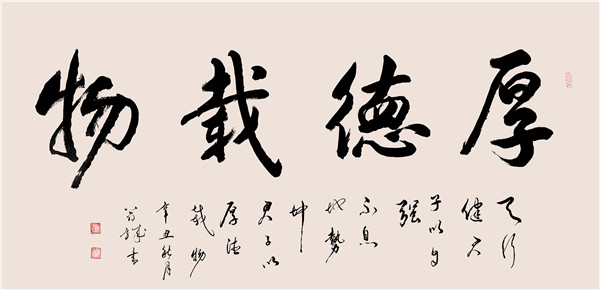 厚德載物
天行
健君
子以自
强
不息
地勢
坤
君子以
厚德
載物
辛丑秋月